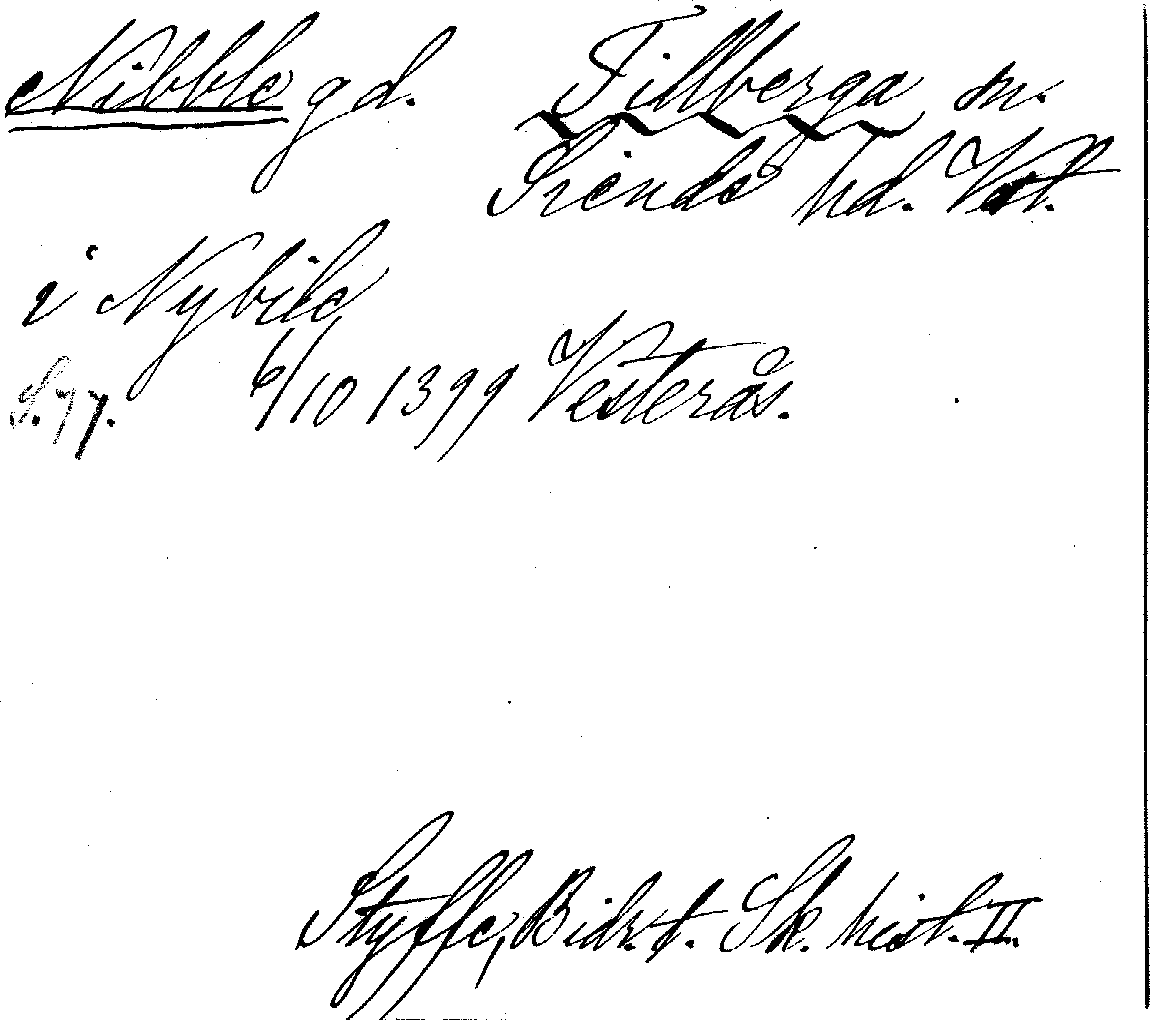 Nibble gd. Tillberga sn.
Siende hd. Vstl.
i Nybile
S. 77. 6/10 1399 Vesterås.
Styffe, Bidr. t. Sk. hist. II.